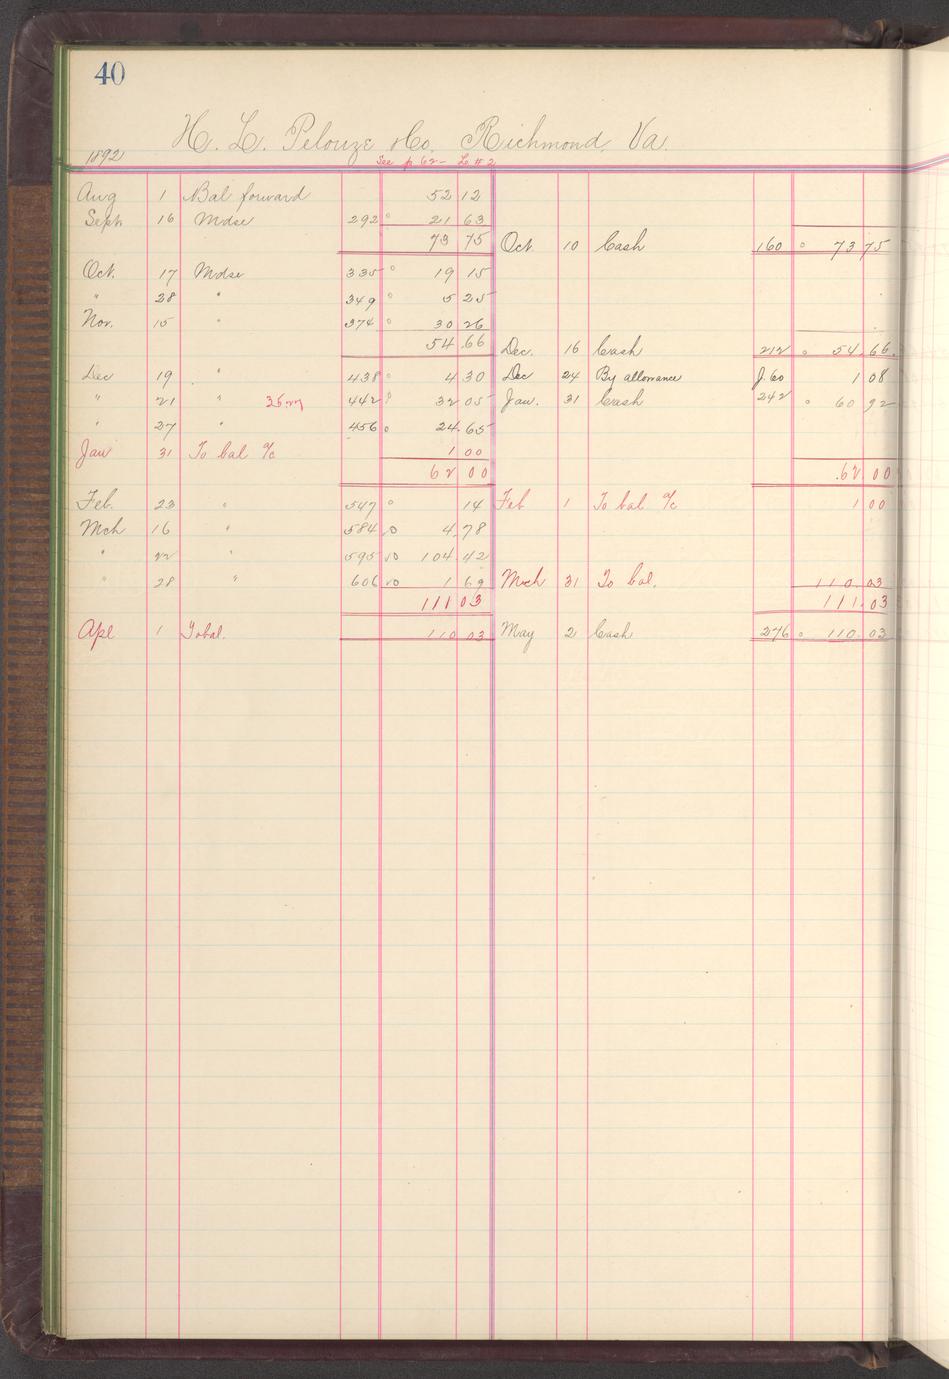 40
H. L. Pelouze & Co. Richmond, Va.
1892 See p 62 - L #2
Aug 1 Bal forward 52 12
Sept 16 Mdse 292 21 63
73 75 Oct. 10 Cash 160 73 75
Oct. 17 Mdse 335 19 15
" 28 " 349 5 25
Nov. 15 " 374 30 26
54.66 Dec. 16 Cash 212 54.66
Dec 19 " 438 4 30 Dec 24 By allowance J.60 1 08
" 21 " 442 32 05 Jan. 31 Cash 242 60 92
" 27 " 456 24.65
Jan 31 To bal a/c 1 00
62 00 62 00
Feb. 23 " 547 14 Feb 1 To bal a/c 1 00
Mch 16 " 584 4.78
" 22 " 595 104.42
" 28 " 606 1 69 Mch 31 To bal. 110.03
111 03 111.03
Apl 1 To bal. 110 03 May 2 Cash 276 110 03